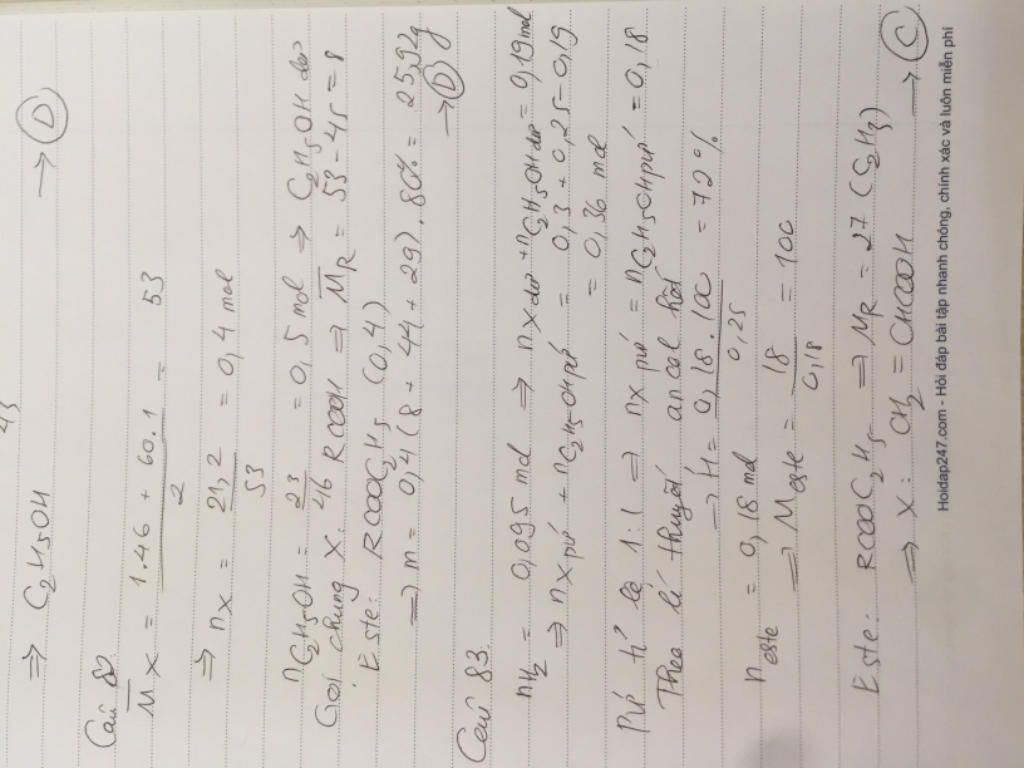 43
⇒ C2H5OH → (D)
Câu 82.
M̅X = (1.46 + 60.1)/2 = 53
⇒ nX = 21,2/53 = 0,4 mol
nC2H5OH = 23/46 = 0,5 mol ⇒ C2H5OH dư
Gọi chung X: RCOOH ⇒ M̅R = 53-45 = 8
Este: RCOOC2H5 (0,4)
⇒ m = 0,4(8 + 44 + 29).80% = 25,92g
→ (D)
Câu 83.
nH2 = 0,095 mol ⇒ nX dư + nC2H5OH dư = 0,19 mol
⇒ nX pứ + nC2H5OH pứ = 0,3 + 0,25 - 0,19
= 0,36 mol
Pứ tỉ lệ 1:1 ⇒ nX pứ = nC2H5OH pứ = 0,18
Theo lí thuyết ancol hết
⇒ H = 0,18.100/0,25 = 72%
neste = 0,18 mol
⇒ Meste = 18/0,18 = 100
Este: RCOOC2H5 ⇒ MR = 27 (C2H3)
⇒ X: CH2 = CHCOOH → (C)
Hoidap247.com - Hỏi đáp bài tập nhanh chóng, chính xác và luôn miễn phí